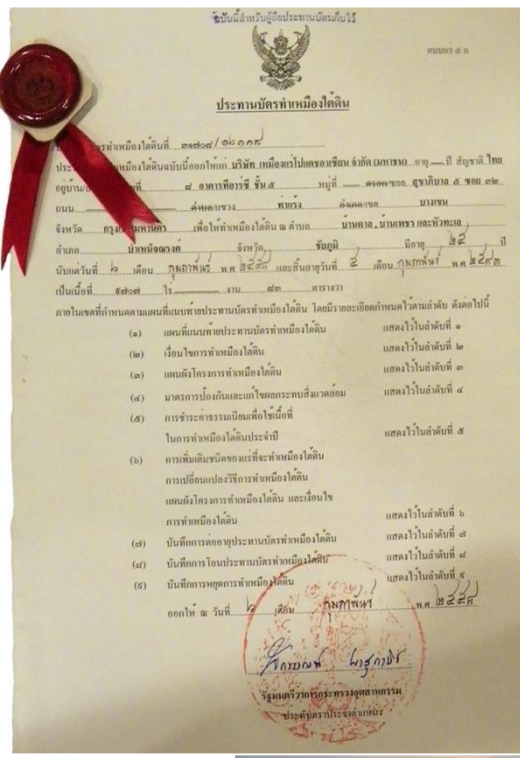 ฉบับนี้สำหรับผู้ถือประทานบัตรเก็บไว้
ประทานบัตรทำเหมืองใต้ดิน
ทำเหมืองใต้ดินที่ ๓๑๗๐๘/๑๖๑๑๙
เหมืองใต้ดินฉบับนี้ออกให้แก่ บริษัท เหมืองแร่โปแตชอาเซียน จำกัด (มหาชน) อายุ — ปี สัญชาติ ไทย
ที่ ๘ อาคารทีอาร์ซี ชั้น ๕ หมู่ที่ — ตรอก/ซอย สุขาภิบาล ๕ ซอย ๓๒
ถนน — ตำบล/แขวง ท่าแร้ง อำเภอ/เขต บางเขน
จังหวัด กรุงเทพมหานคร เพื่อให้ทำเหมืองใต้ดิน ณ ตำบล บ้านตาล, บ้านเพชร และหัวทะเล
อำเภอ บำเหน็จณรงค์ จังหวัด ชัยภูมิ มีอายุ ๒๕ ปี
นับแต่วันที่ ๖ เดือน กุมภาพันธ์ พ.ศ. ๒๕๕๘ และสิ้นอายุวันที่ ๕ เดือน กุมภาพันธ์ พ.ศ. ๒๕๘๓
เป็นเนื้อที่ ๙๗๐๗ ไร่ — งาน ๘๓ ตารางวา
ภายในเขตที่กำหนดตามแผนที่แนบท้ายประทานบัตรทำเหมืองใต้ดิน โดยมีรายละเอียดกำหนดไว้ตามลำดับ ดังต่อไปนี้
(๑) แผนที่แนบท้ายประทานบัตรทำเหมืองใต้ดิน แสดงไว้ในลำดับที่ ๑
(๒) เงื่อนไขการทำเหมืองใต้ดิน แสดงไว้ในลำดับที่ ๒
(๓) แผนผังโครงการทำเหมืองใต้ดิน แสดงไว้ในลำดับที่ ๓
(๔) มาตรการป้องกันและแก้ไขผลกระทบสิ่งแวดล้อม แสดงไว้ในลำดับที่ ๔
(๕) การชำระค่าธรรมเนียมเพื่อใช้เนื้อที่
ในการทำเหมืองใต้ดินประจำปี แสดงไว้ในลำดับที่ ๕
(๖) การเพิ่มเติมชนิดของแร่ที่จะทำเหมืองใต้ดิน
การเปลี่ยนแปลงวิธีการทำเหมืองใต้ดิน
แผนผังโครงการทำเหมืองใต้ดิน และเงื่อนไข
การทำเหมืองใต้ดิน แสดงไว้ในลำดับที่ ๖
(๗) บันทึกการต่ออายุประทานบัตรทำเหมืองใต้ดิน แสดงไว้ในลำดับที่ ๗
(๘) บันทึกการโอนประทานบัตรทำเหมืองใต้ดิน แสดงไว้ในลำดับที่ ๘
(๙) บันทึกการหยุดการทำเหมืองใต้ดิน แสดงไว้ในลำดับที่ ๙
ออกให้ ณ วันที่ ๖ เดือน กุมภาพันธ์ พ.ศ. ๒๕๕๘
รัฐมนตรีว่าการกระทรวงอุตสาหกรรม
ประทับตราประจำตำแหน่ง